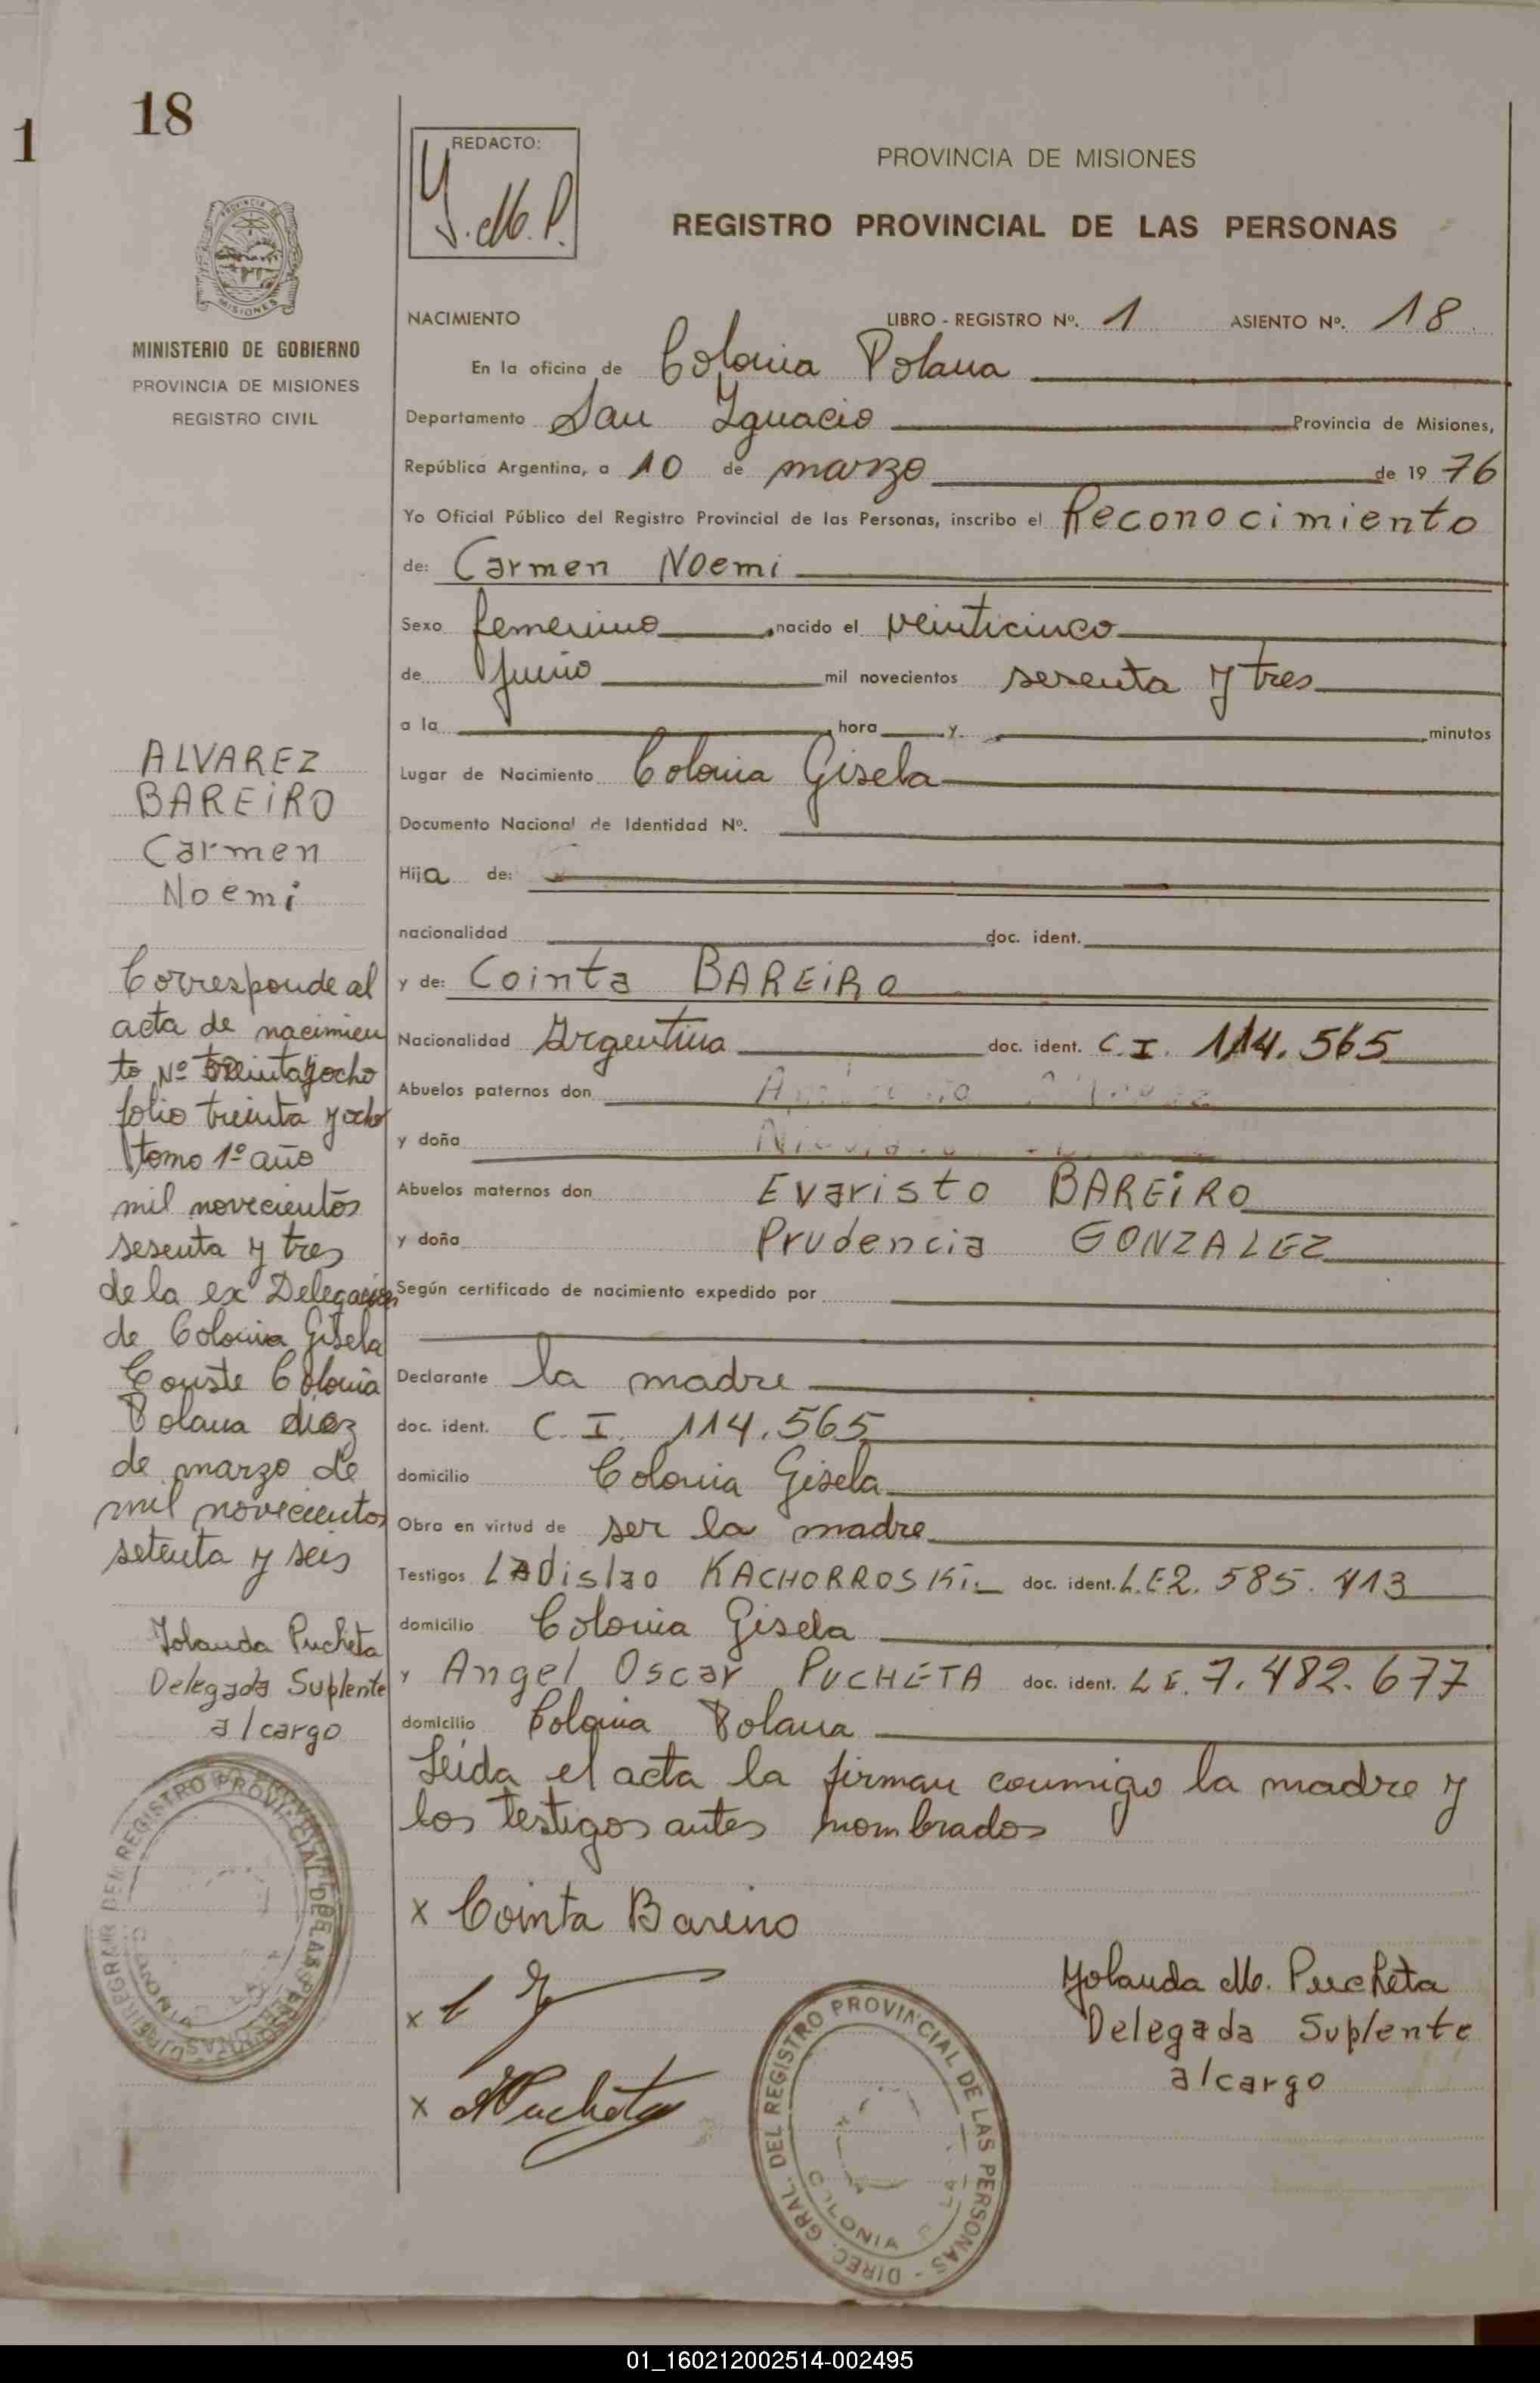 1
18
REDACTO:
Y. M. P.
PROVINCIA DE MISIONES
REGISTRO PROVINCIAL DE LAS PERSONAS
MINISTERIO DE GOBIERNO
PROVINCIA DE MISIONES
REGISTRO CIVIL
NACIMIENTO LIBRO - REGISTRO Nº. 1 ASIENTO Nº. 18
En la oficina de Colonia Polana
Departamento San Ignacio Provincia de Misiones,
República Argentina, a 10 de marzo de 19 76
Yo Oficial Público del Registro Provincial de las Personas, inscribo el Reconocimiento
de: Carmen Noemi
Sexo femenino nacido el veinticinco
de Junio mil novecientos sesenta y tres
a la hora y minutos
Lugar de Nacimiento Colonia Gisela
Documento Nacional de Identidad Nº.
Hija de:
nacionalidad doc. ident.
y de: Cointa BAREIRO
Nacionalidad Argentina doc. ident. C.I. 114.565
Abuelos paternos don
y doña
Abuelos maternos don Evaristo BAREIRO
y doña Prudencia GONZALEZ
Según certificado de nacimiento expedido por
Declarante la madre
doc. ident. C. I. 114.565
domicilio Colonia Gisela
Obra en virtud de ser la madre
Testigos Ladislao KACHORROSKI doc. ident. L.E 2.585.413
domicilio Colonia Gisela
y Angel Oscar PUCHETA doc. ident. L E. 7.482.677
domicilio Colonia Polana
Leida el acta la firman conmigo la madre y
los testigos antes nombrados
x Cointa Bareiro
x
x Pucheta
Yolanda M. Pucheta
Delegada Suplente
a/cargo
ALVAREZ
BAREIRO
Carmen
Noemi
Corresponde al
acta de nacimien
to Nº treinta y ocho
folio treinta y ocho
tomo 1º año
mil novecientos
sesenta y tres
de la ex Delegación
de Colonia Gisela
Conste Colonia
Polana diez
de marzo de
mil novecientos
setenta y seis
Yolanda Pucheta
Delegada Suplente
a/cargo
DIREC. GRAL. DEL REGISTRO PROVINCIAL DE LAS PERSONAS
COLONIA
01_160212002514-002495